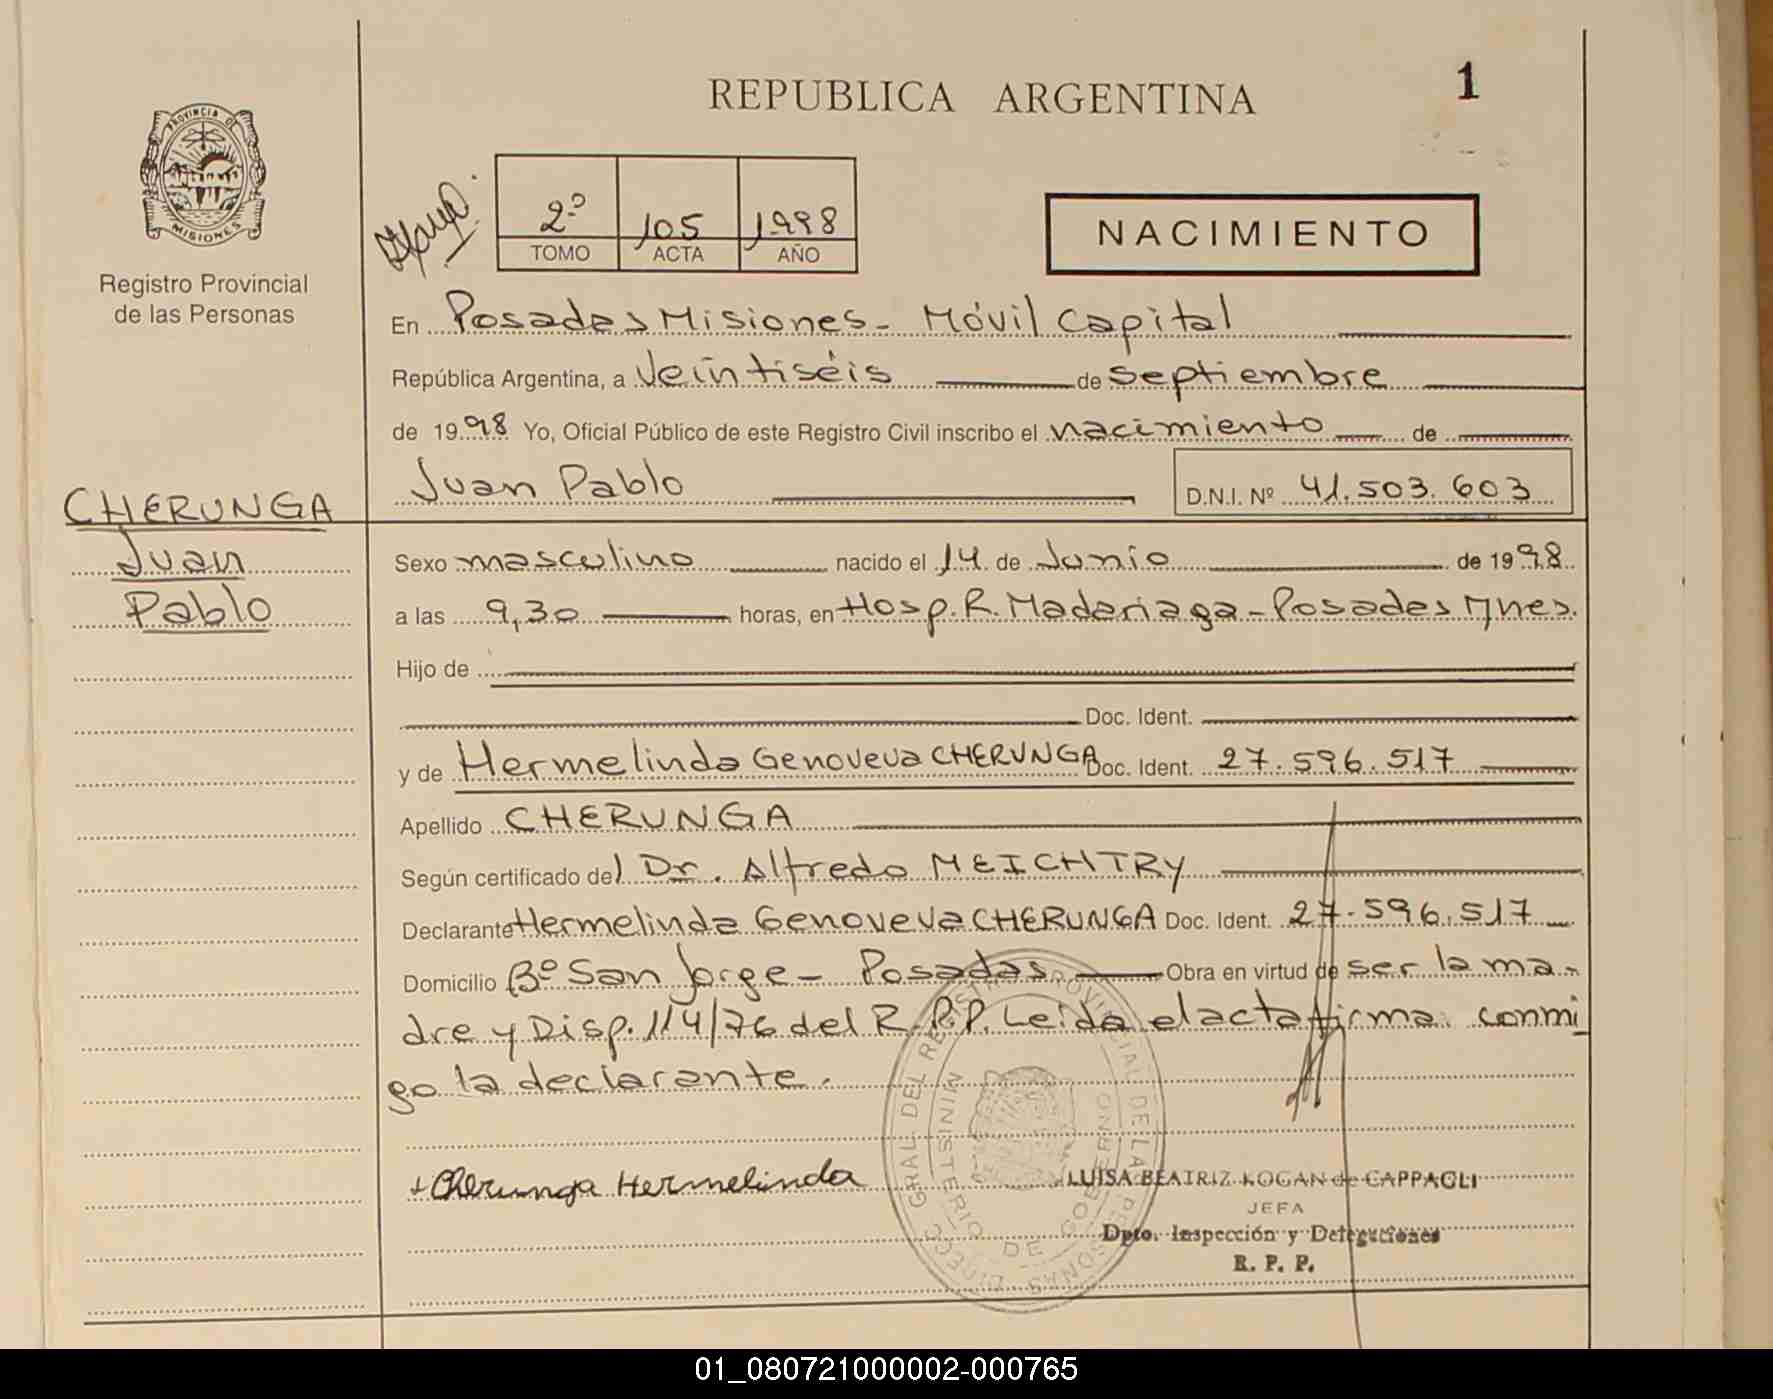 REPUBLICA ARGENTINA
1
PROVINCIA DE
MISIONES
Registro Provincial
de las Personas
2º 105 1998
TOMO ACTA AÑO
NACIMIENTO
En Posadas Misiones - Móvil Capital
República Argentina, a Veintiséis de septiembre
de 1998 Yo, Oficial Público de este Registro Civil inscribo el nacimiento de
Juan Pablo D.N.I. Nº 41.503.603
CHERUNGA
Juan
Pablo
Sexo masculino nacido el 14 de Junio de 1998
a las 9,30 horas, en Hosp. R. Madariaga - Posadas Mnes.
Hijo de
Doc. Ident.
y de Hermelinda Genoveva CHERUNGA Doc. Ident. 27.596.517
Apellido CHERUNGA
Según certificado del Dr. Alfredo MEICHTRY
Declarante Hermelinda Genoveva CHERUNGA Doc. Ident. 27.596.517
Domicilio Bº San Jorge - Posadas Obra en virtud de ser la ma-
dre y Disp. 114/76 del R.P.P. Leida el acta firma conmi
go la declarante.
Cherunga Hermelinda
DIRECC. GRAL. DEL REGISTRO PROVINCIAL DE LAS PERSONAS
MINISTERIO DE GOBIERNO
LUISA BEATRIZ KOGAN de CAPPAGLI
JEFA
Dpto. Inspección y Delegaciones
R. P. P.
01_080721000002-000765